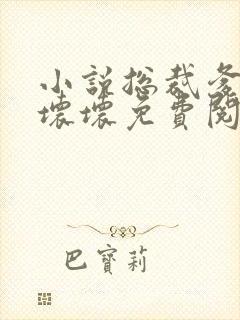 小說總裁爹
壞壞免費閱
巴寶莉